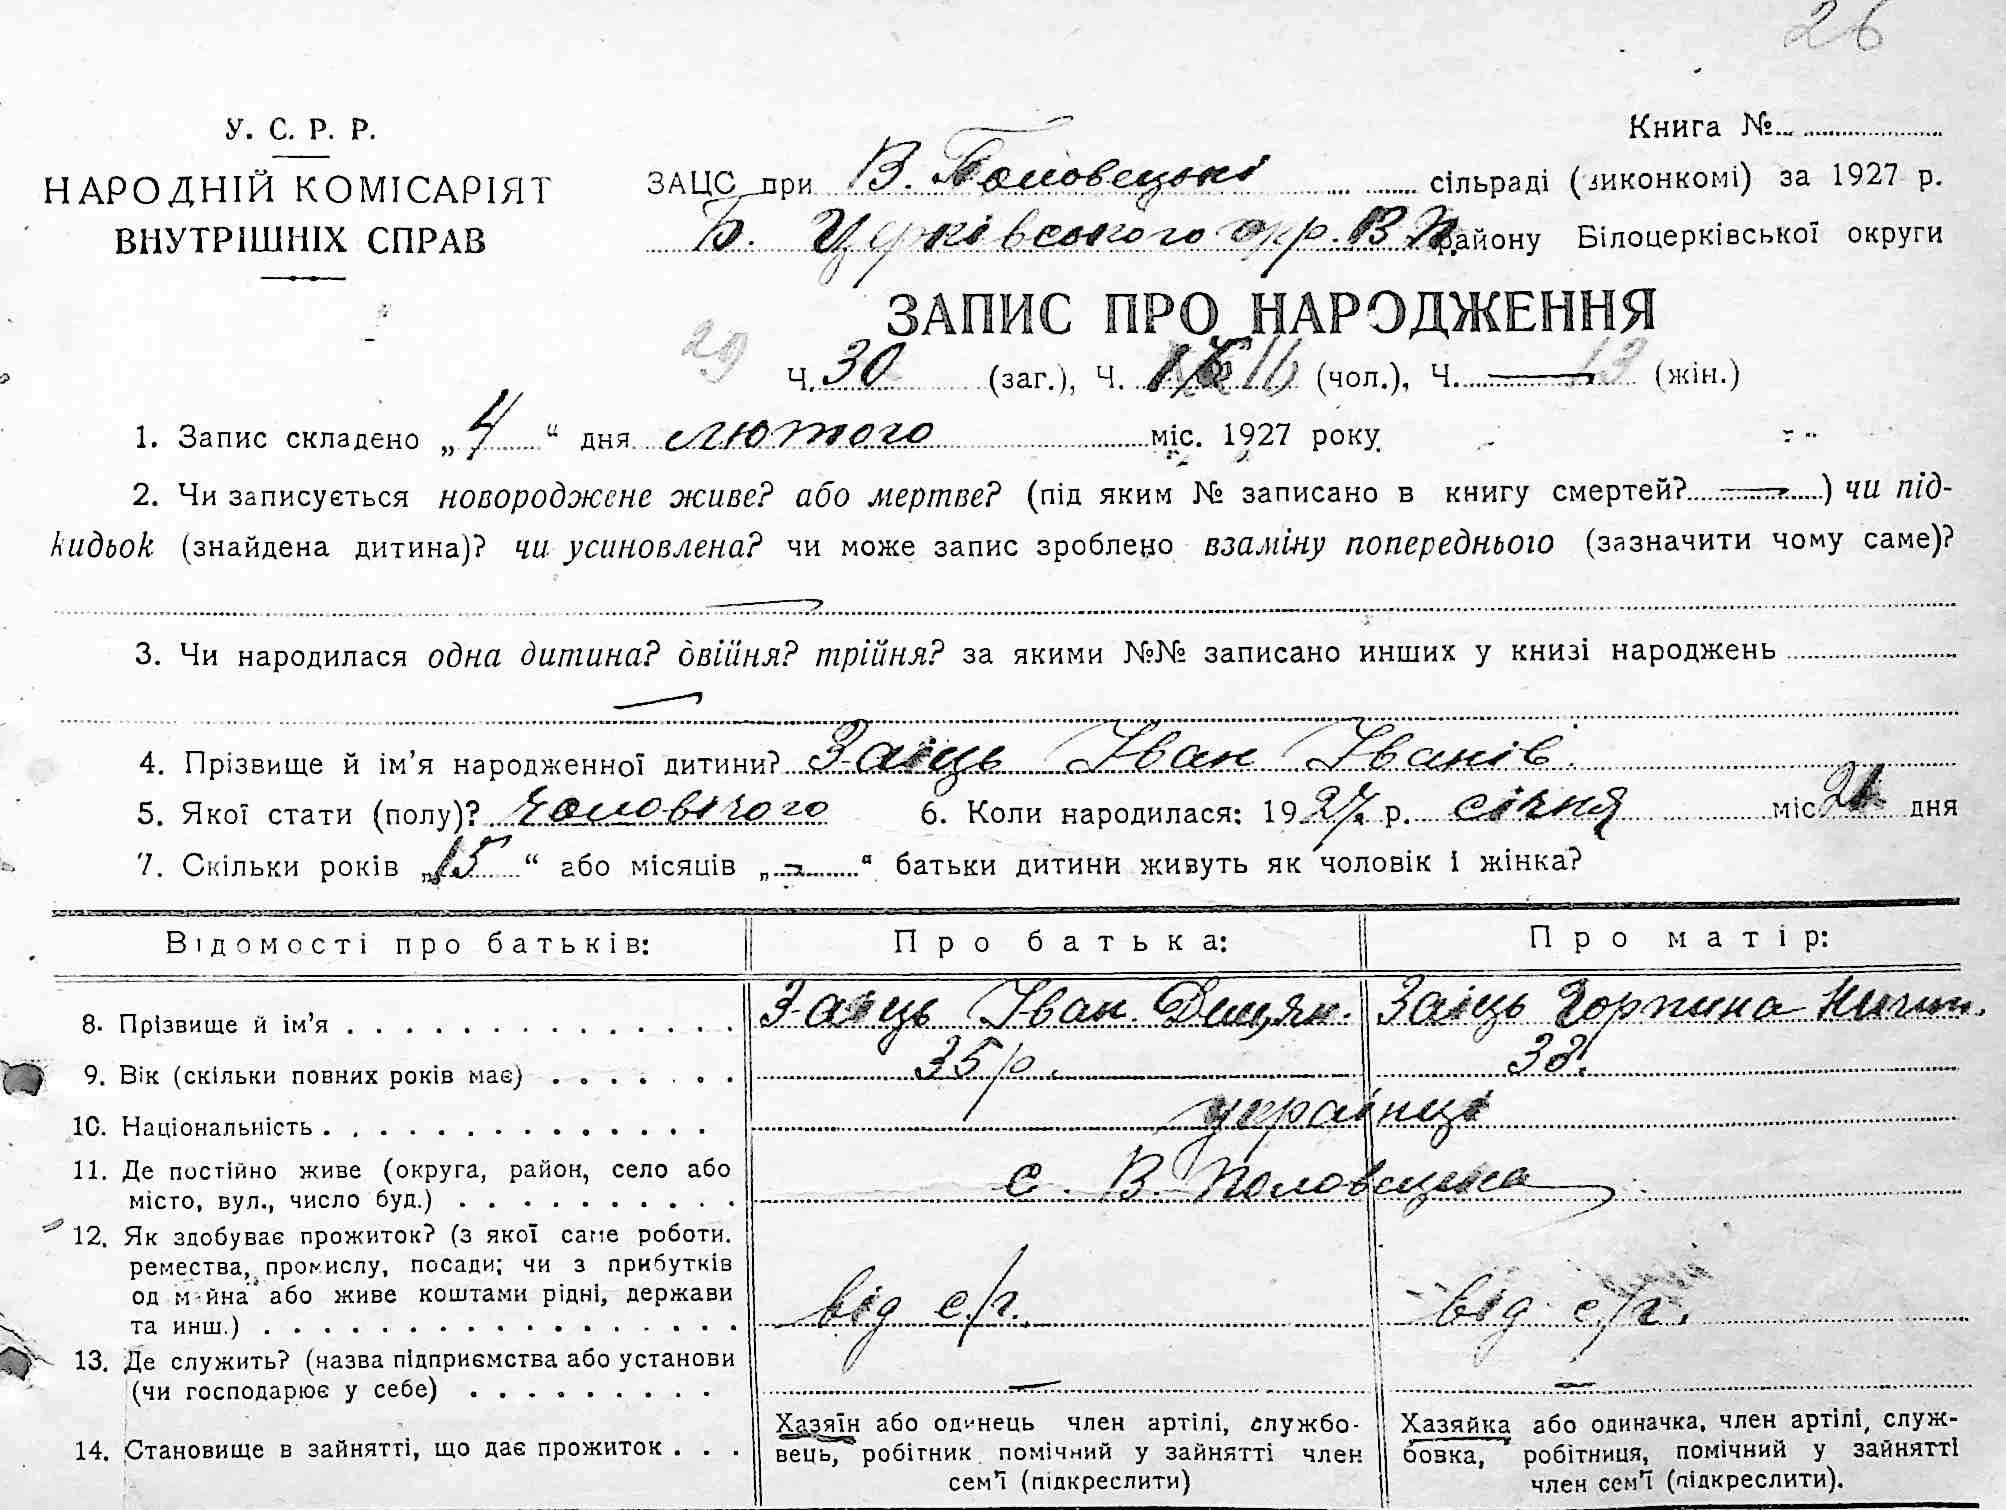 26
У. С. Р. Р.
НАРОДНІЙ КОМІСАРІЯТ
ВНУТРІШНІХ СПРАВ
Книга №
ЗАЦС при В. Половецькі сільраді (виконкомі) за 1927 р.
Б. Церківського окр. району Білоцерківської округи
ЗАПИС ПРО НАРОДЖЕННЯ
29 Ч. 30 (заг.), Ч. 16 (чол.), Ч. — 13 (жін.)
1. Запис складено „4“ дня лютого міс. 1927 року
2. Чи записується новороджене живе? або мертве? (під яким № записано в книгу смертей? —) чи під-
кидьок (знайдена дитина)? чи усиновлена? чи може запис зроблено взаміну попереднього (зазначити чому саме)?
—
3. Чи народилася одна дитина? двійня? трійня? за якими №№ записано инших у книзі народжень
—
4. Прізвище й ім’я народженної дитини? Заіць Іван Іванів.
5. Якої стати (полу)? чоловічого 6. Коли народилася: 1927 р. січня міс 21 дня
7. Скільки років „15“ або місяців „—“ батьки дитини живуть як чоловік і жінка?
Відомості про батьків: Про батька: Про матір:
8. Прізвище й ім’я Заіць Іван Заіць Горпина
9. Вік (скільки повних років має) 35 р.
10. Національність українці
11. Де постійно живе (округа, район, село або
місто, вул., число буд.) с. В. Половецька
12. Як здобуває прожиток? (з якої саме роботи.
ремества, промислу, посади; чи з прибутків
од майна або живе коштами рідні, держави
та инш.) від с/г. від с/г.
13. Де служить? (назва підприємства або установи
(чи господарює у себе) — —
14. Становище в зайнятті, що дає прожиток
Хазяїн або одинець член артілі, службо-
вець, робітник помічний у зайнятті член
сем’ї (підкреслити)
Хазяйка або одиначка, член артілі, служ-
бовка, робітниця, помічний у зайнятті
член сем’ї (підкреслити).